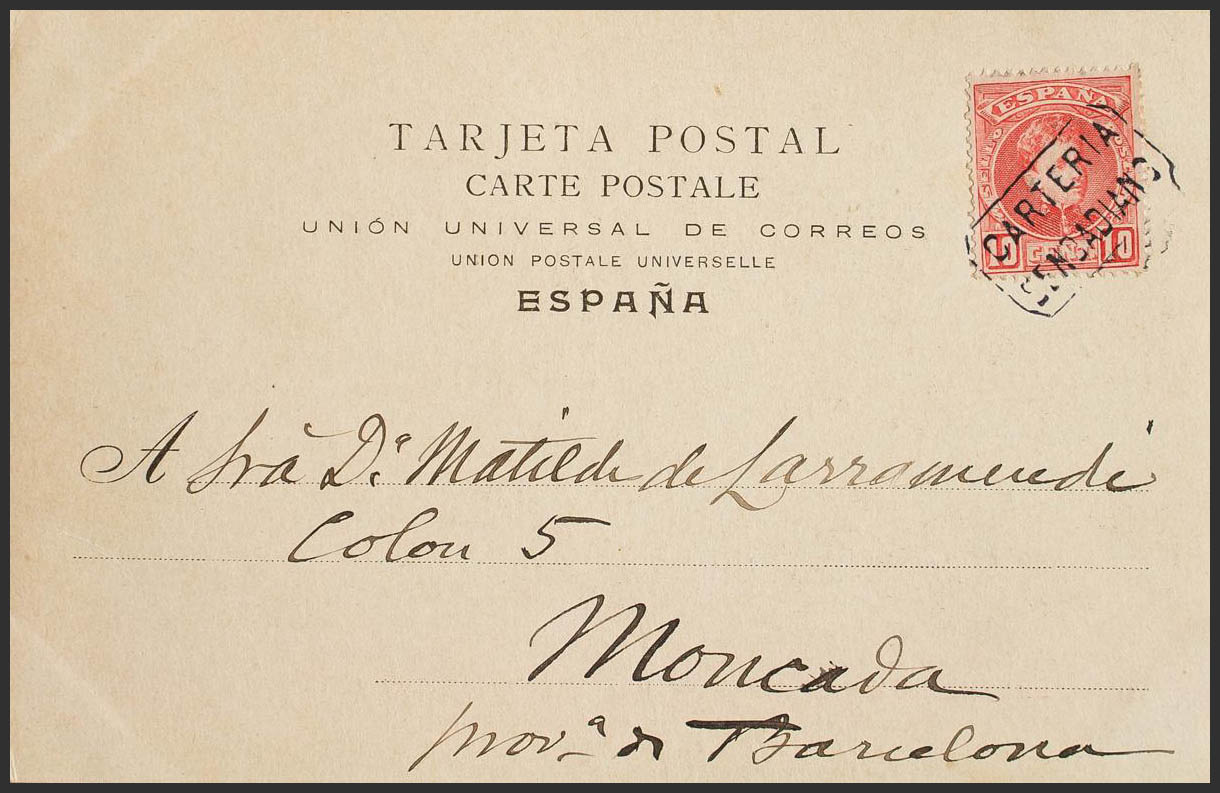 TARJETA POSTAL
CARTE POSTALE
UNIÓN UNIVERSAL DE CORREOS
UNION POSTALE UNIVERSELLE
ESPAÑA
ESPAÑA
10 CENTS 10
CARTERIA
SENCADIANS
A Srà Dª Matilde de Larramendi
Colon 5
Moncada
provª de Barcelona